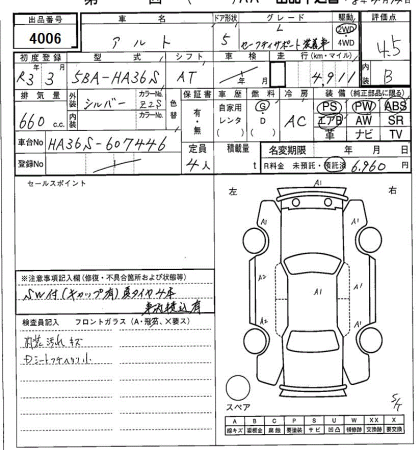 出品番号 車名 ドア形状 グレード 駆動 評価点
4006 アルト 5 L セーフティサポート装着車 2WD 4WD 4.5
初度登録 型式 シフト 車検 走行 (km・マイル) 内装
R3 3月 5BA-HA36S AT 年 月 4,911 B
排気量 外装 カラーNo. 色替 保証書 車歴 燃料 冷房 装備 (純正部品に限る)
660 c.c. シルバー Z2S 有・無 自家用 レンタ G・D AC PS PW ABS
内装 カラーNo. エアB AW SR
革 ナビ TV
車台No HA36S-607446 定員 積載量 名変期限 年 月 日
登録No 4人 t R料金 未預託・預託済 6,960 円
セールスポイント
左 右
A1
A2 A1 A1
A2 A1
※注意事項記入欄(修復・不具合箇所および状態等)
SW付(キャップ有)夏タイヤ4本
車内積込有
検査員記入 フロントガラス(A・飛石、×要ス)
内装汚れキズ
スペア
5/7
A B C P S U W X XX
線キズ 要補金 腐食 要塗装 サビ 凹凸 補修跡 交換跡 要交換